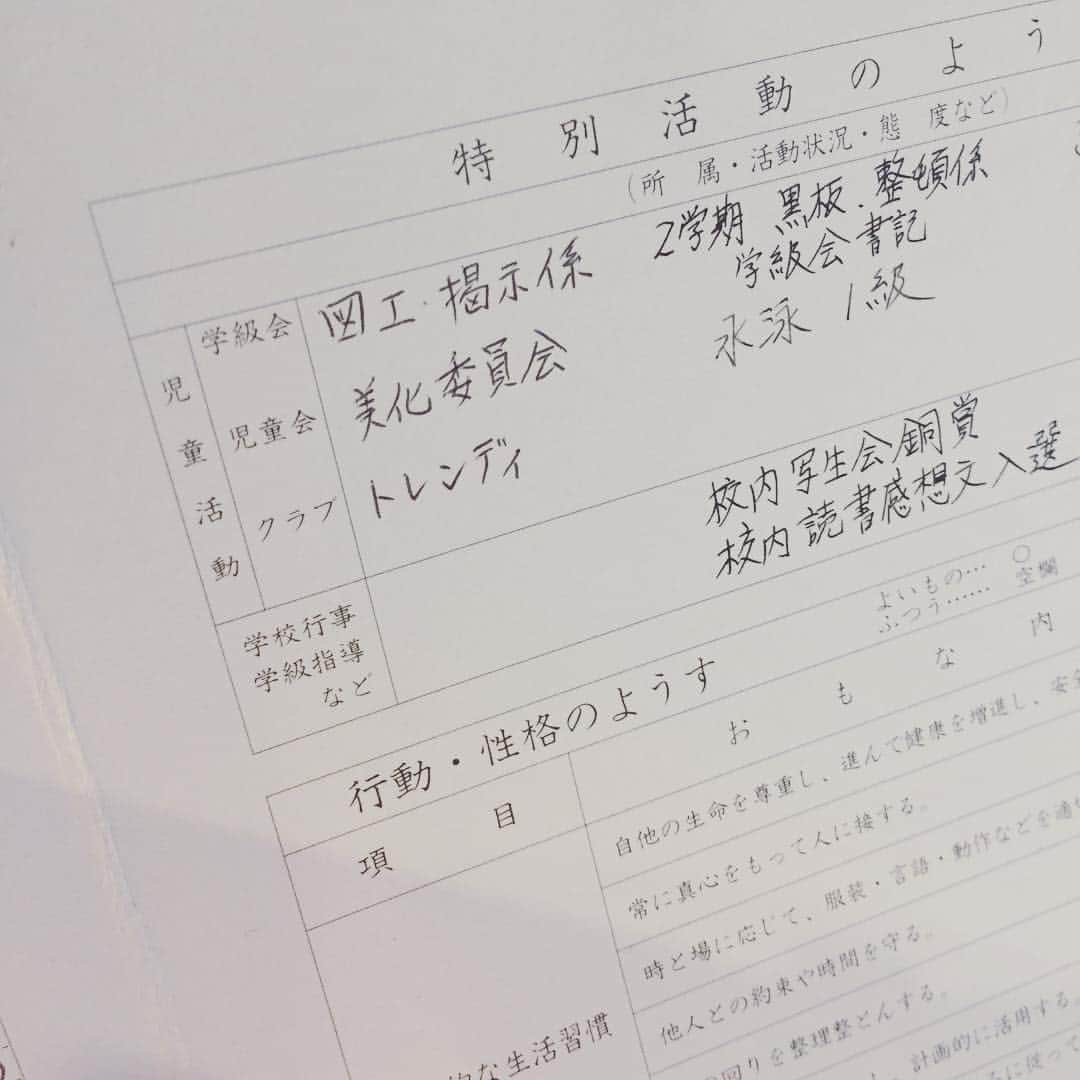 特別活動のよう
(所属・活動状況・態度など)
児童活動
学級会
図工・掲示係
2学期 黒板・整頓係
学級会書記
児童会
美化委員会
水泳 1級
クラブ
トレンディ
校内写生会銅賞
校内読書感想文入選
学校行事
学級指導
など
行動・性格のようす
よいもの… ○
ふつう…… 空欄
項目
おもな内
自他の生命を尊重し、進んで健康を増進し、安全
常に真心をもって人に接する。
時と場に応じて、服装・言語・動作などを適
他人との約束や時間を守る。
回りを整理整とんする。
計画的に活用する。
に従って
的な生活習慣